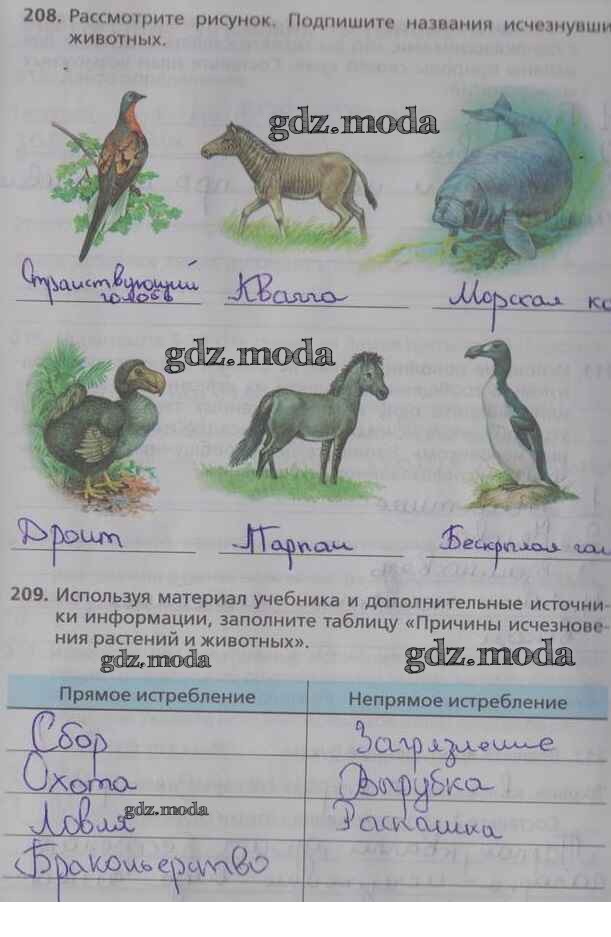 208. Рассмотрите рисунок. Подпишите названия исчезнувши
животных.
gdz.moda
Странствующий
голубь
Квагга
Морская ко
gdz.moda
Дронт
Тарпан
Бескрылая га
209. Используя материал учебника и дополнительные источни-
ки информации, заполните таблицу «Причины исчезнове-
ния растений и животных».
gdz.moda
gdz.moda
Прямое истребление
Непрямое истребление
Сбор
Загрязнение
Охота
Вырубка
Ловля
gdz.moda
Распашка
Браконьерство